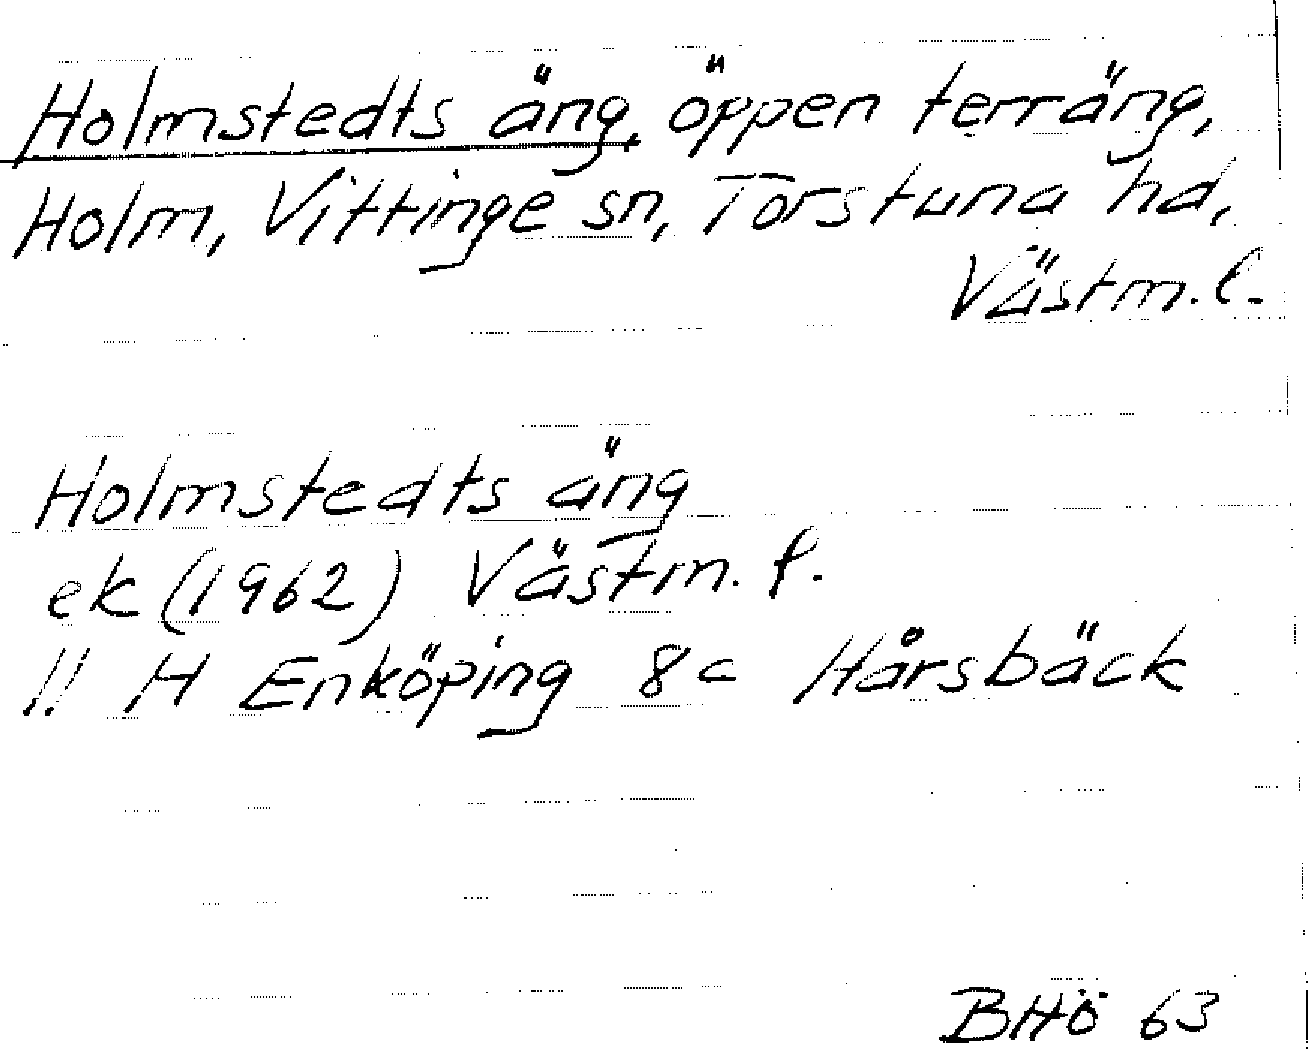 Holmstedts äng, öppen terräng,
Holm, Vittinge sn, Torstuna hd,
Västm. l.
Holmstedts äng
ek (1962) Västm. l.
!! H Enköping 8c Hårsbäck
BHö 63